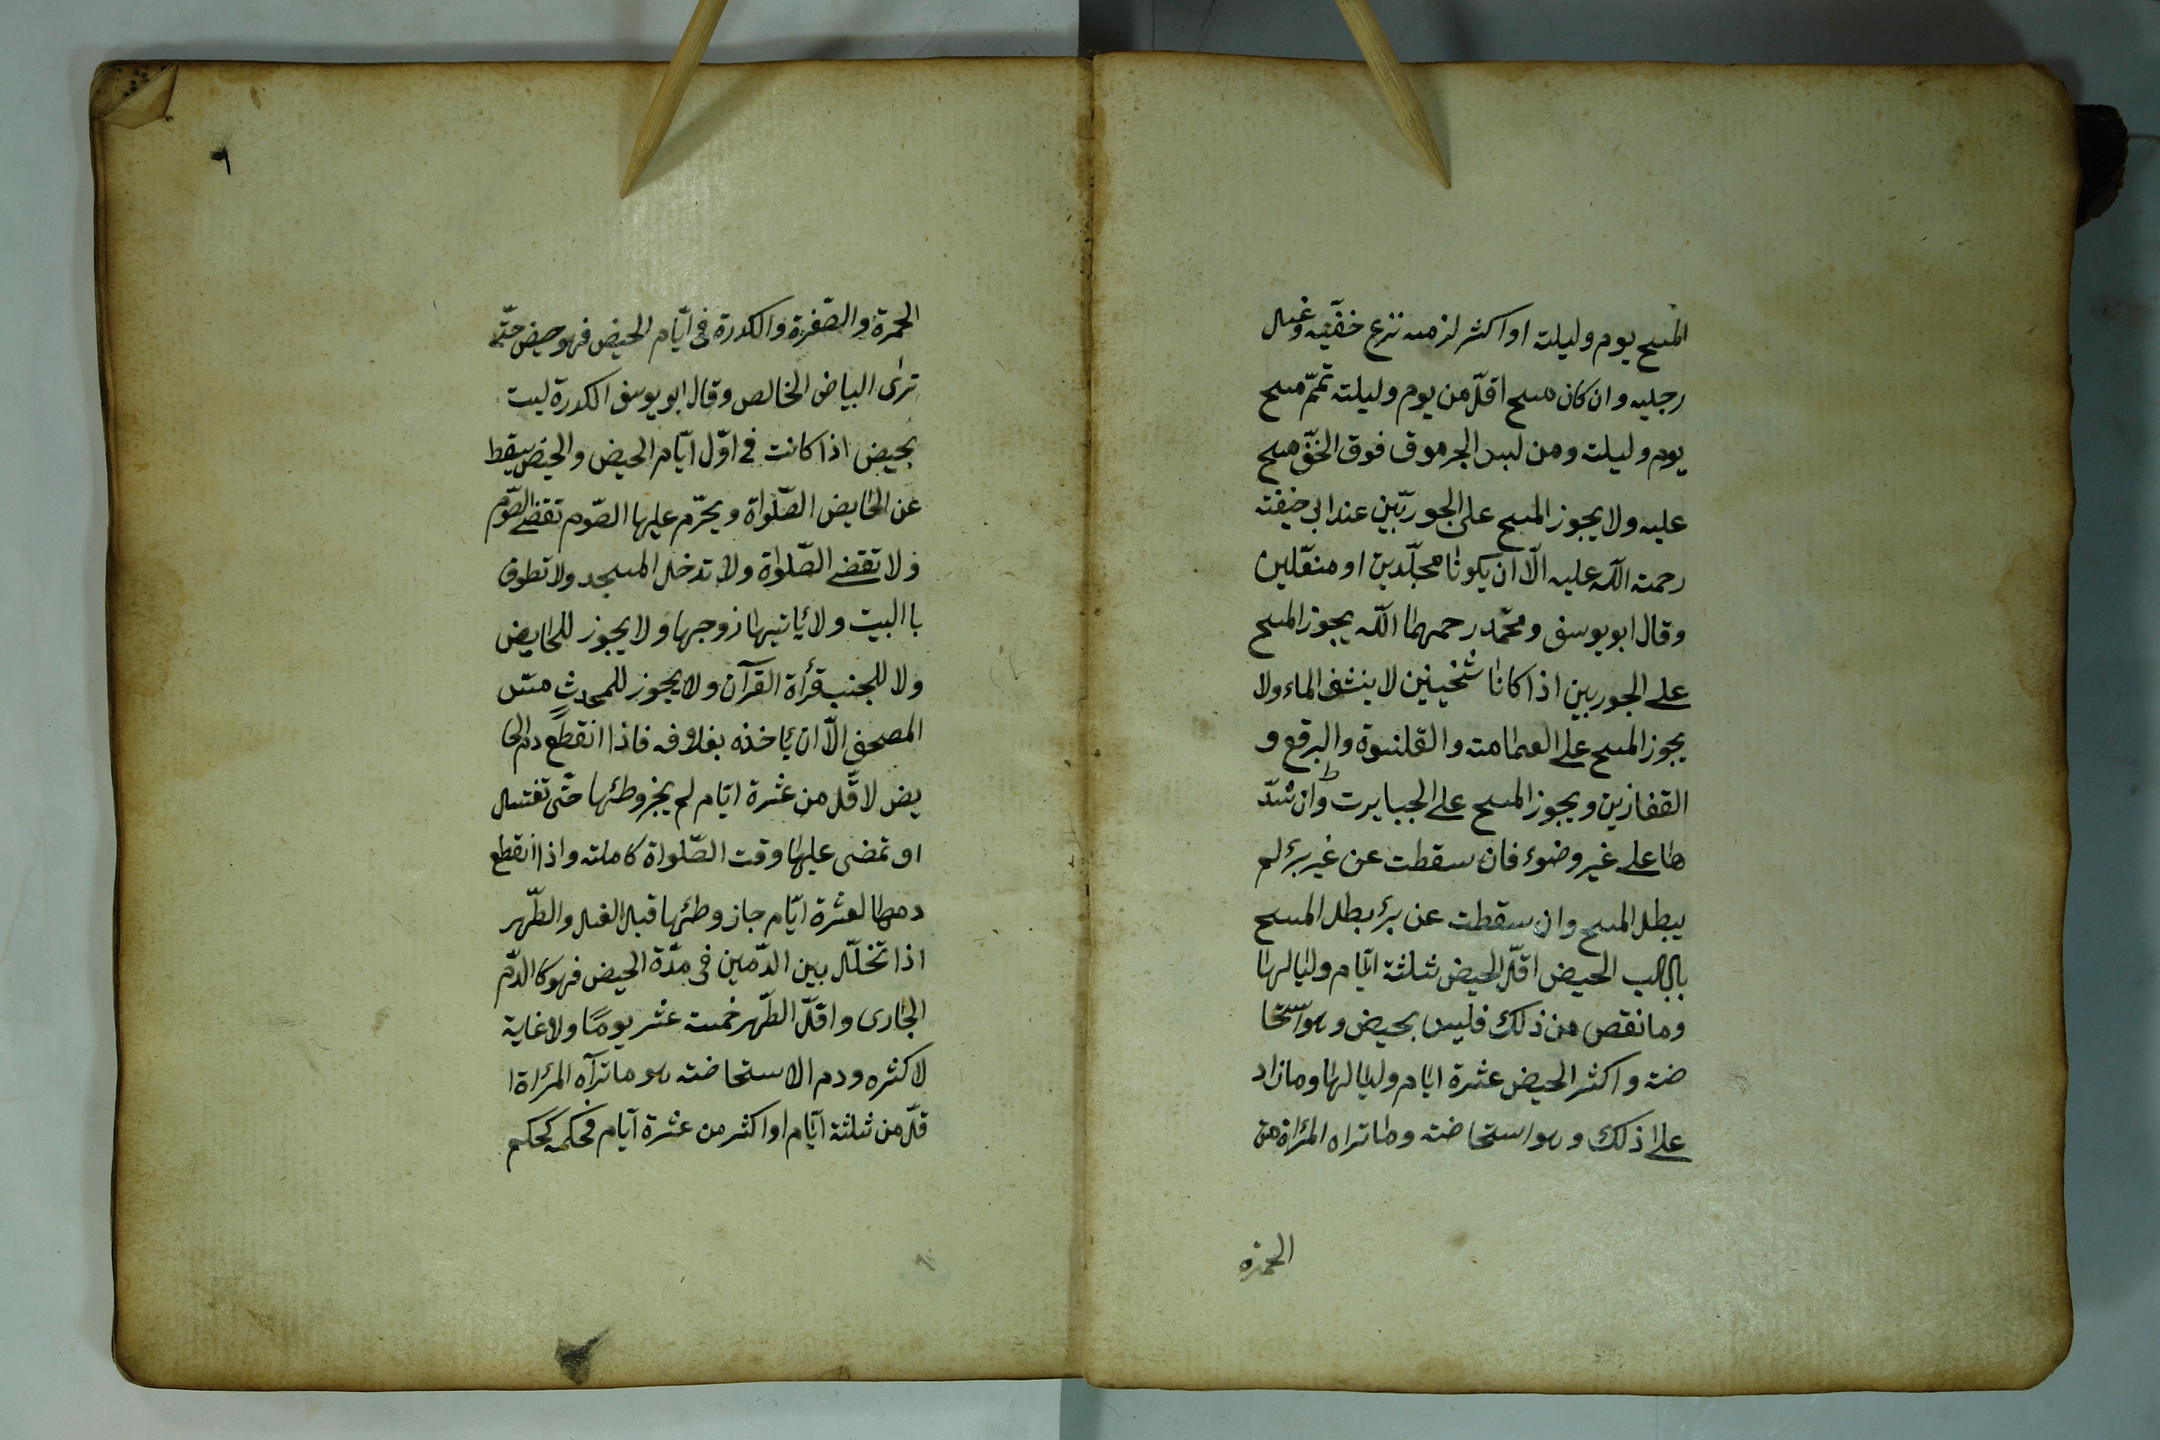 المسح يوم وليلته او اكثر لزمه نزع خفيّه وغسل
رجليه وان كان مسح اقلّ من يوم وليلته تمّم مسح
يوم وليلته ومن لبس الجرموق فوق الخفّ مسح
عليه ولا يجوز المسح على الجوربّين عند ابي حنيفته
رحمته اللّه عليه الّا ان يكونا مجلّدين او منعّلين
وقال ابو يوسف ومحمّد رحمهما اللّه يجوز المسح
على الجوربين اذا كانا ثخينين لا ينشف الماء ولا
يجوز المسح على العمامته والقلنسوة والبرقع و
القفازين ويجوز المسح على الجبايرت وان شدّ
ها على غير وضوء فان سقطت عن غير برء لم
يبطل المسح وان سقطت عن برء بطل المسح
باب الحيض اقلّ الحيض ثلثة ايّام ولياليها
وما نقص من ذلك فليس بحيض وهو استحا
ضته واكثر الحيض عشرة ايام ولياليها وما زاد
على اذلك وهو استحاضته وما تراه المرأة من
الحمرة
٦
الحمرة والصّفرة والكدرة فى ايّام الحيض فهو حيض حتّى
ترى البياض الخالص وقال ابو يوسف الكدرة ليست
بحيض اذا كانت فى اوّل ايّام الحيض والحيض يسقط
عن الحايض الصّلواة ويحرّم عليها الصّوم تقضى الصّوم
ولا تقضى الصّلواة ولا تدخل المسجد ولا تطوف
با البيت ولا ياتيها زوجها ولا يجوز للحايض
ولا للجنب قرأة القرآن ولا يجوز للمحدث مسّ
المصحف الّا ان ياخذه بغلافه فاذا انقطع دم الحا
يض لاقّل من عشرة ايّام لم يجز وطئها حتّى تغتسل
او تمضى عليها وقت الصّلواة كاملته واذا انقطع
دمها لعشرة ايّام جاز وطئها قبل الغسل والطّهر
اذا تخلّل بين الدّمين فى مدّة الحيض فهو كا الدّم
الجارى واقلّ الطّهر خمسته عشر يومًا ولا غاية
لاكثره ودم الاستحاضته هو ما ترآه المرأة ا
قلّ من ثلثة ايّام او اكثر من عشرة ايام فحكمه كحكم